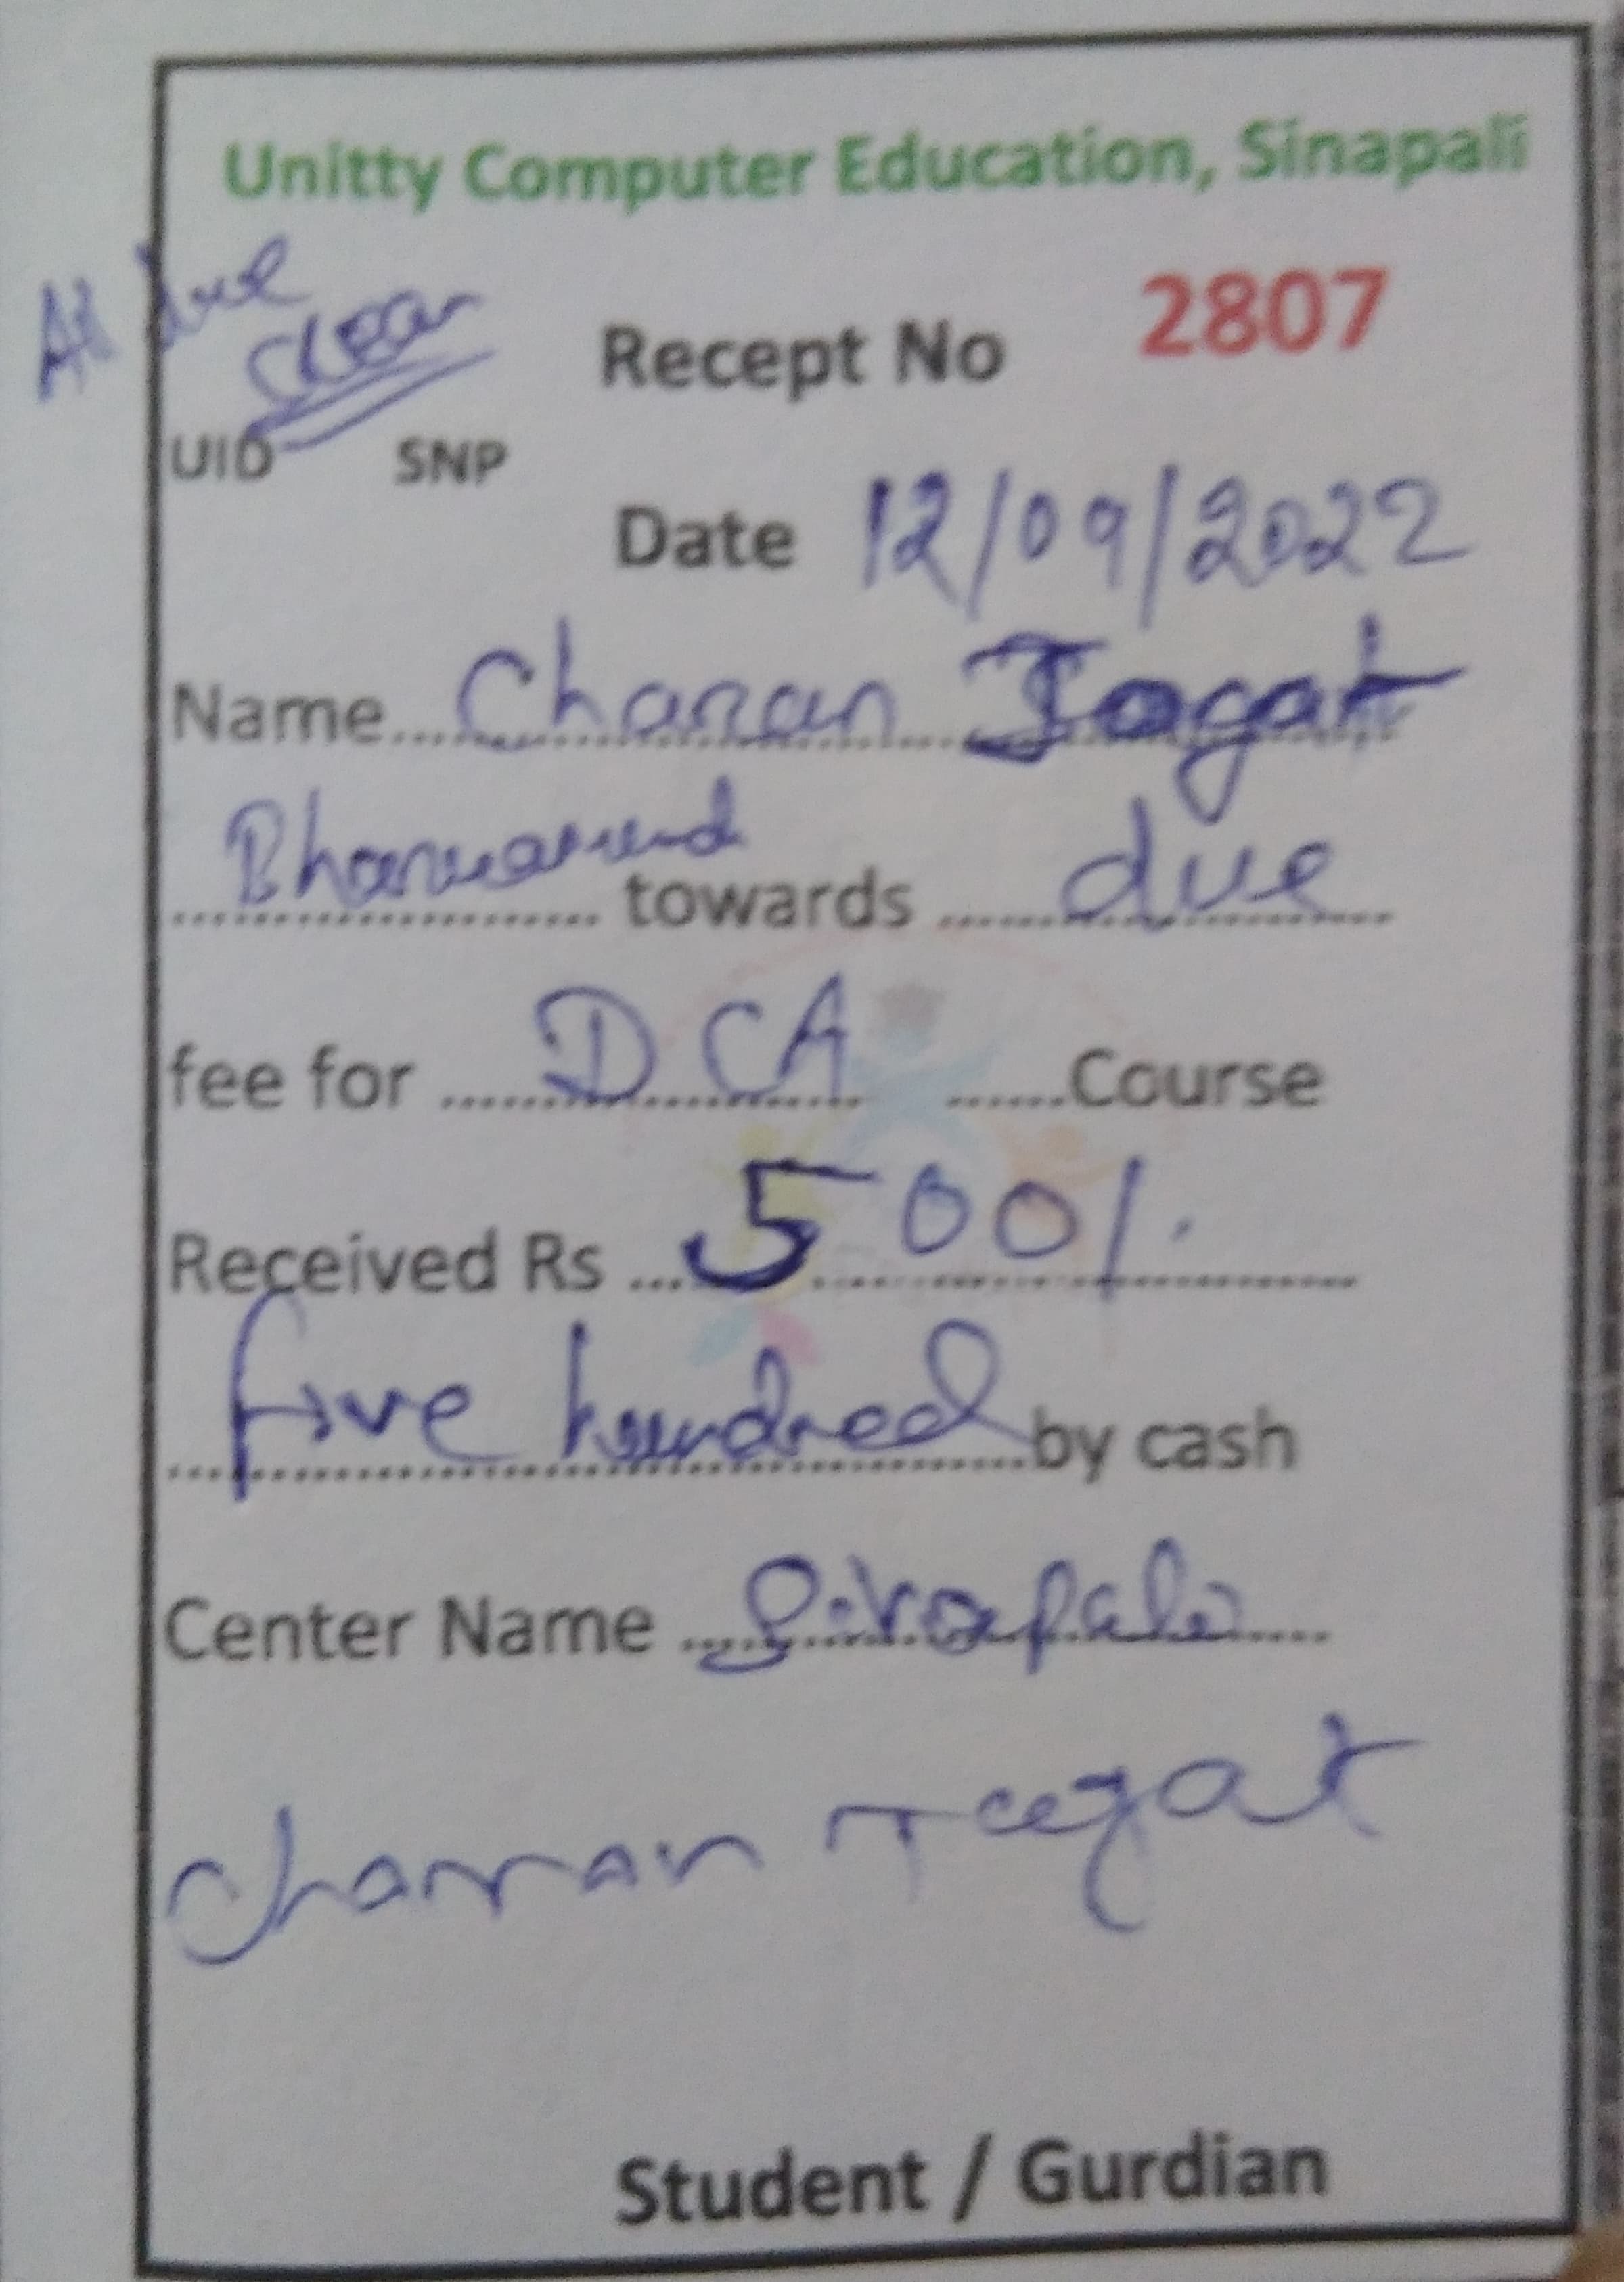 Unitty Computer Education, Sinapali
All due
Clear
Recept No 2807
UID SNP
Date 12/09/2022
Name Charan Jagat
towards due
fee for DCA Course
Received Rs 500/.
five hundred by cash
Center Name Sinapali
Charan Jagat
Student / Gurdian